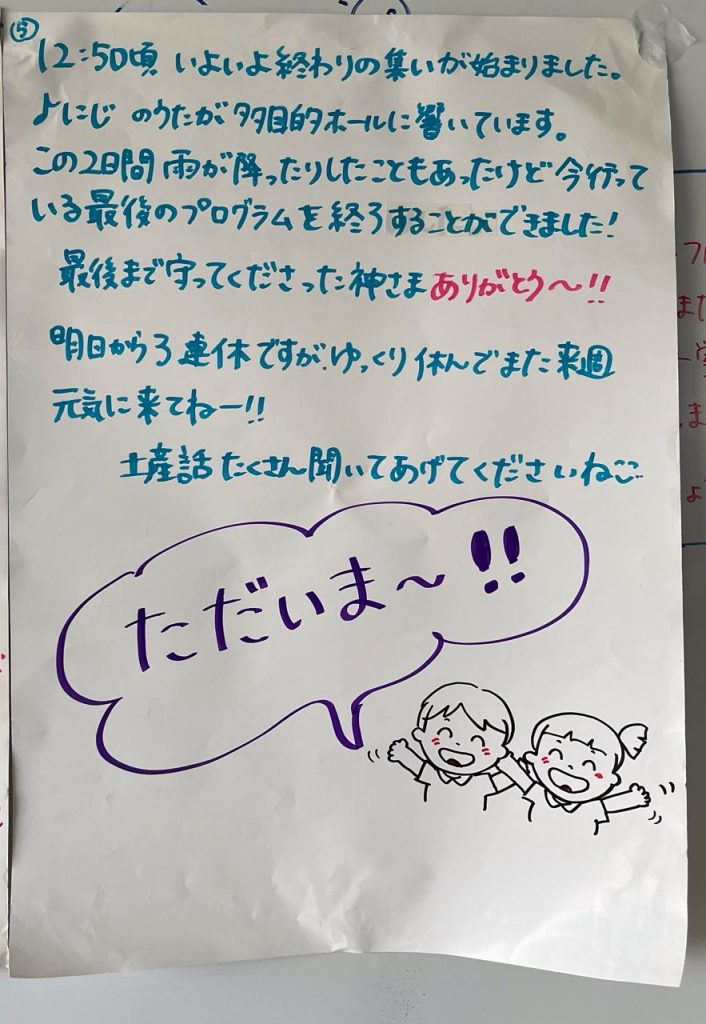 ⑤
12:50頃 いよいよ終わりの集いが始まりました。
よにじ のうたが多目的ホールに響いています。
この2日間雨が降ったりしたこともあったけど今行って
いる最後のプログラムを終了することができました!
最後まで守ってくださった神さまありがとう〜!!
明日から3連休ですが、ゆっくり休んでまた来週
元気に来てねー!!
土産話たくさん聞いてあげてくださいね
ただいま〜!!